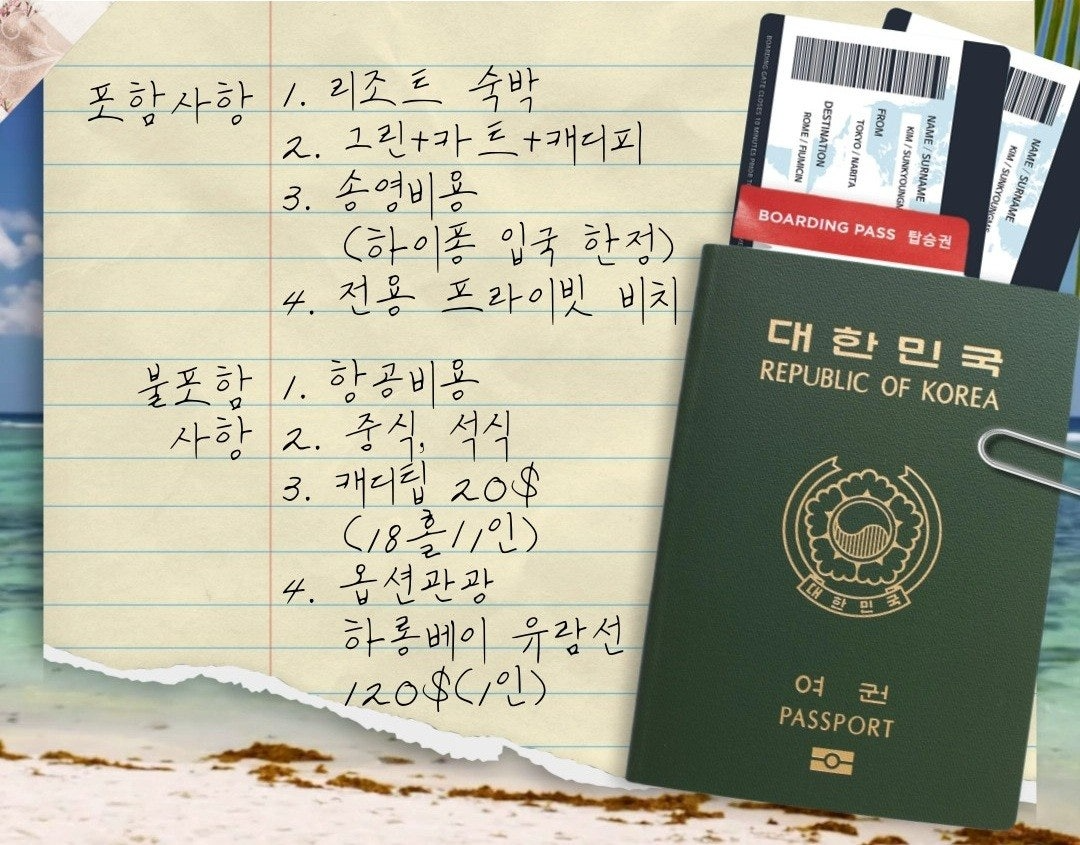 포함사항 1. 리조트 숙박
2. 그린+카트+캐디피
3. 송영비용
(하이퐁 입국 한정)
4. 전용 프라이빗 비치
불포함 1. 항공비용
사항 2. 중식, 석식
3. 캐디팁 20$
(18홀/1인)
4. 옵션관광
하롱베이 유람선
120$(1인)
BOARDING GATE CLOSES 10 MINUTES PRIOR
NAME / SURNAME
KIM / SUNKYOUNG
FROM
TOKYO / NARITA
DESTINATION
ROME / FIUMICIN
NAME / SURNAME
KIM / SUNKYOUNG
BOARDING PASS 탑승권
대한민국
REPUBLIC OF KOREA
대한민국
여권
PASSPORT